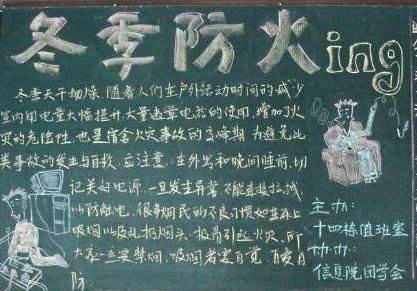 冬季防火ing
冬季天干物燥,随着人们在户外活动时间的减少
室内用电量大幅提升,大量违章电器的使用,增加了火
灾的危险性,也是宿舍火灾事故的高峰期,为避免此
类事故的发生与自救,应注意:在外出和晚间睡前,切
记关好电源,一旦发生异常不能直接拉拽
以防触电,很多烟民的不良习惯如在床上
吸烟以及乱扔烟头,极易引起火灾,所
大家一定要禁烟,吸烟者要自觉
防
主办:
十四栋值班室
协办:
信息院团学会